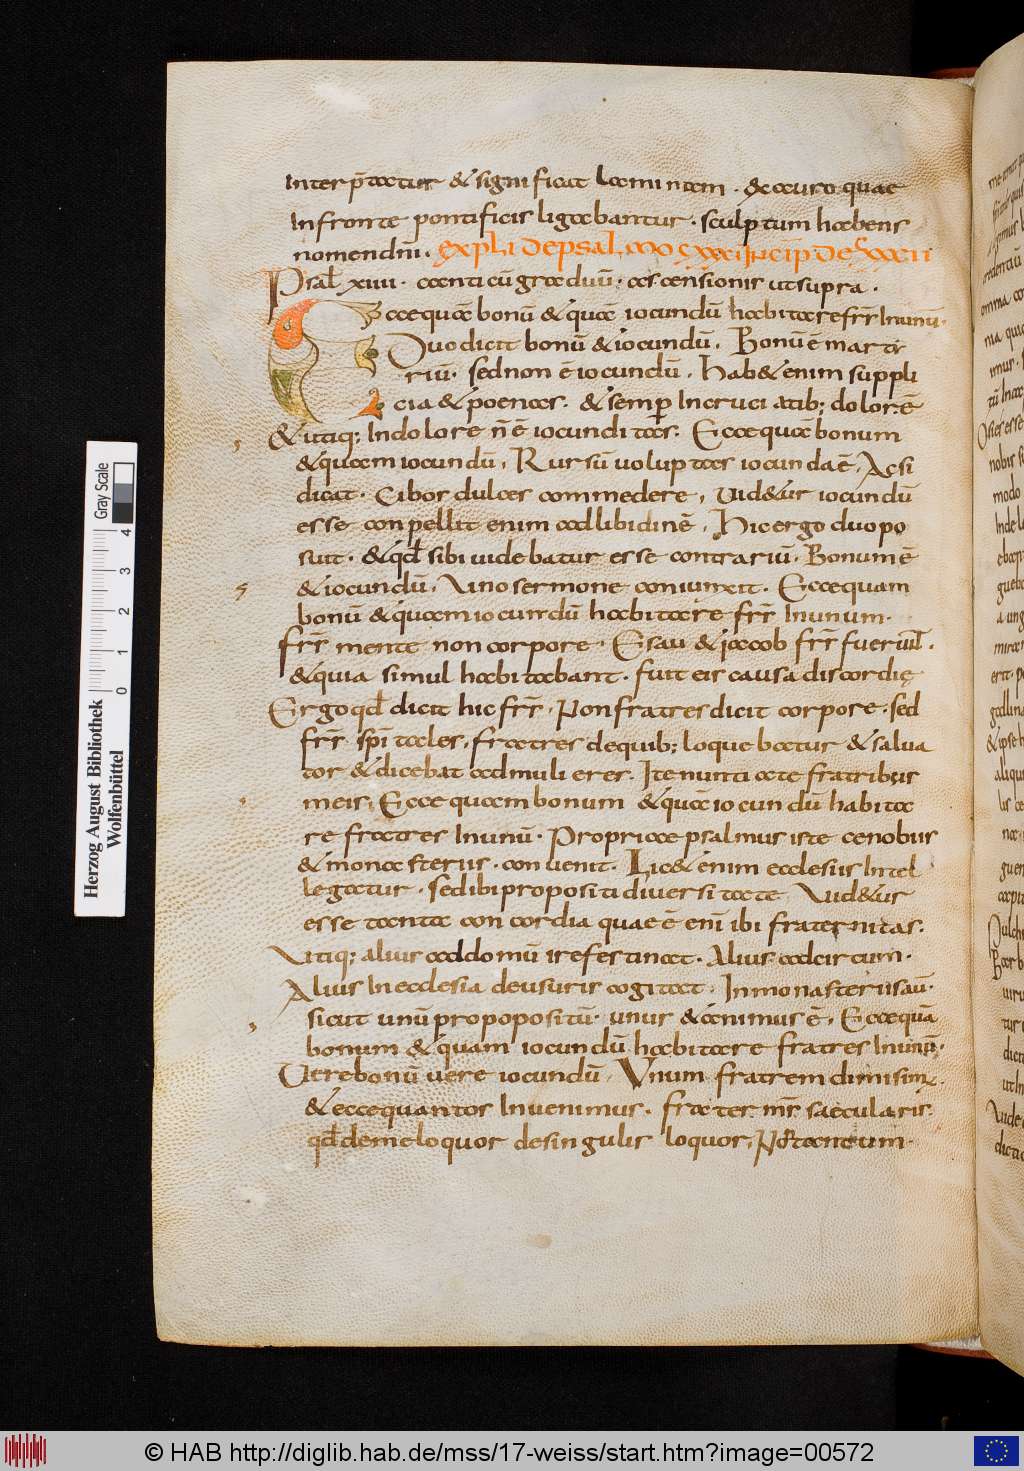 interp̄tatur & significat laminam · & auro quae
Infronte pontificis ligabantur · sculptum habens
nomendñi · expli de psalmo cxxxi incip de cxxxii
Psal xiiii · canticū graduū · ascensionis utsupra ·
Eccequā bonū & quā iocundū habitare frr̄ Inunū·
Duo dicit bonū & iocundū · Bonū ē marti
riū · sed non ē iocundū · Hab& enim suppli
cia & poenas · & semp Incruciatib; dolor ē
& utiq; Indolore n̄ ē iocunditas · Eccequā bonum
& quam iocundū · Rursū uoluptas iocunda ē · Acsi
dicat · Cibos dulces commedere · uid&ur iocundū
esse conpellit enim adlibidinē · Hic ergo duo po
suit · & qđ sibi uidebatur esse contrariū · Bonum ē
& iocundū · Uno sermone coniunxit · Eccequam
bonū & quam iocundū habitare frr̄ Inunum ·
frr̄ mente non corpore · Esau & iacob frr̄ fuerunt ·
& quia simul habitabant · fuit eis causa discordię
Ergo qđ dicit hic frr̄ · Non fratres dicit corpore · sed
frr̄ sp̄i tales · fratres dequib; loquebatur & salua
tor & dicebat ad mulieres · Ite nuntiate fratribus
meis · Ecce quam bonum & quā iocundū habita
re fratres Inunū · Propriae psalmus iste cenobiis
& monasteriis · conuenit · Lic& enim ecclesiis Intel
legatur · sed ibi propositi diuersitate Uid&ur
esse tanta concordia quae ē enī ibi fraternitas ·
Utiq; alius ad domū ire festinat · Alius adcircum ·
Alius In ecclesia deusuris cogitat · In monasteriis aū ·
sicut unū propopositū · unus & animus ē · Eccequā
bonum & quam iocundū habitare fratres Inunū ·
Vere bonū uere iocundū · Vnum fratrem dimisim; ·
& eccequantos Inuenimus · frater mr̄ saecularis ·
qđ deme loquor desingulis loquor · N̄ tantum ·
Herzog August Bibliothek
Wolfenbüttel
Gray Scale
0 1 2 3 4
© HAB http://diglib.hab.de/mss/17-weiss/start.htm?image=00572